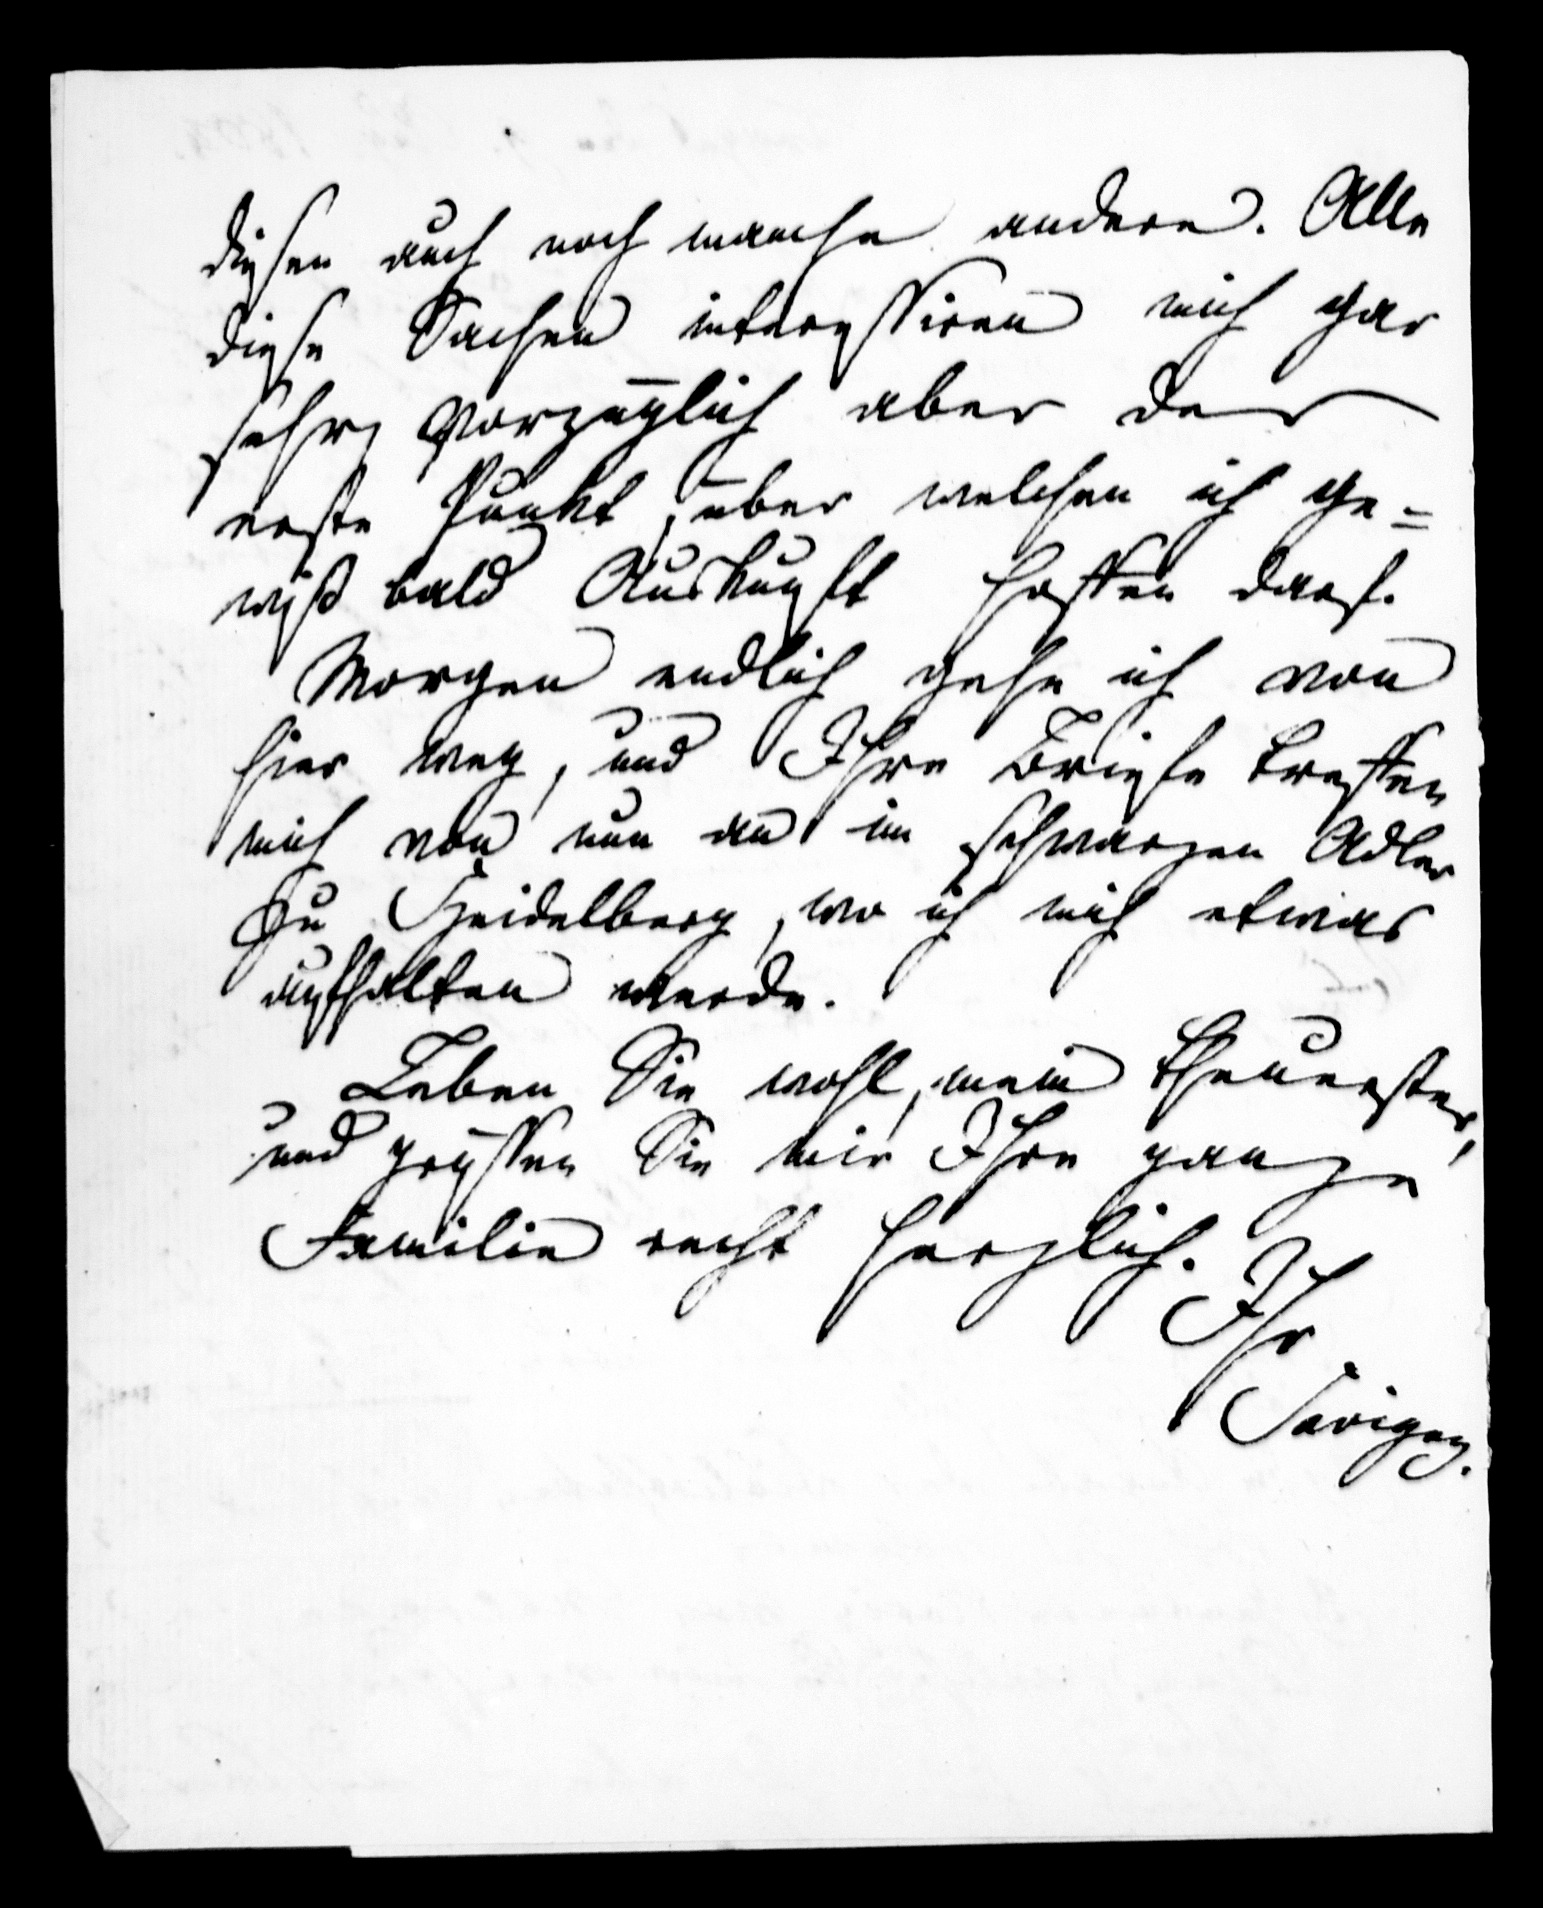 diesen auch noch manche andere. Alle
diese Sachen interessiren mich gar
sehr, vorzüglich aber der
erste Punkt, über welchen ich ge=
wiß bald Auskunft hoffen darf.
Morgen endlich gehe ich von
hier weg, und Ihre Briefe treffen
mich von nun an im schwarzen Adler
zu Heidelberg, wo ich mich etwas
aufhalten werde.
Leben Sie wohl, mein theuerster,
und grüssen Sie mir Ihre ganze
Familie recht herzlich.
Ihr
Savigny.